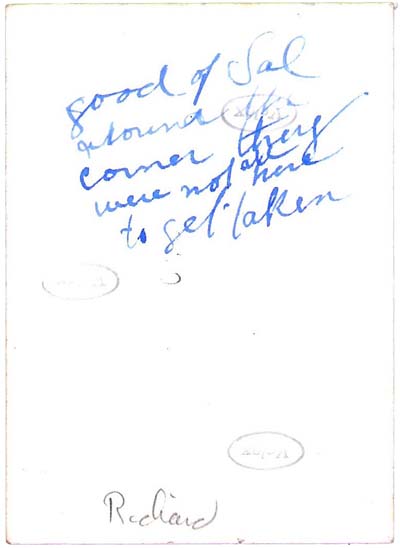 good of Sal
around the
corner they
were not all here
to get taken
Richard